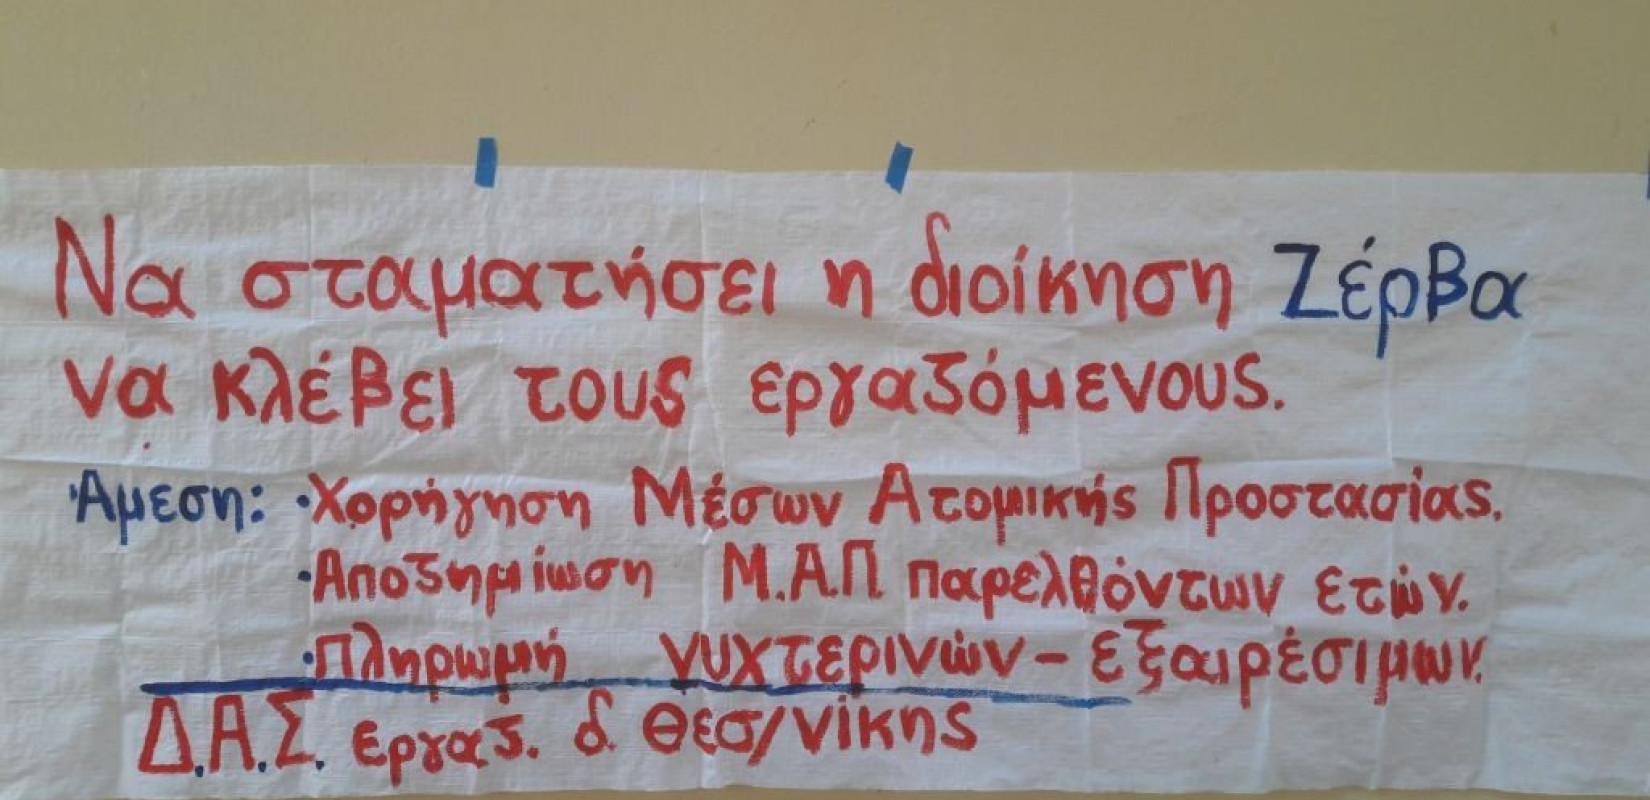 Να σταματήσει η διοίκηση Ζέρβα
να κλέβει τους εργαζόμενους.
Άμεση: ·Χορήγηση Μέσων Ατομικής Προστασίας.
·Αποζημίωση Μ.Α.Π παρελθόντων ετών.
·Πληρωμή νυχτερινών - εξαιρέσιμων.
Δ.Α.Σ. εργαζ. δ. Θεσ/νίκης